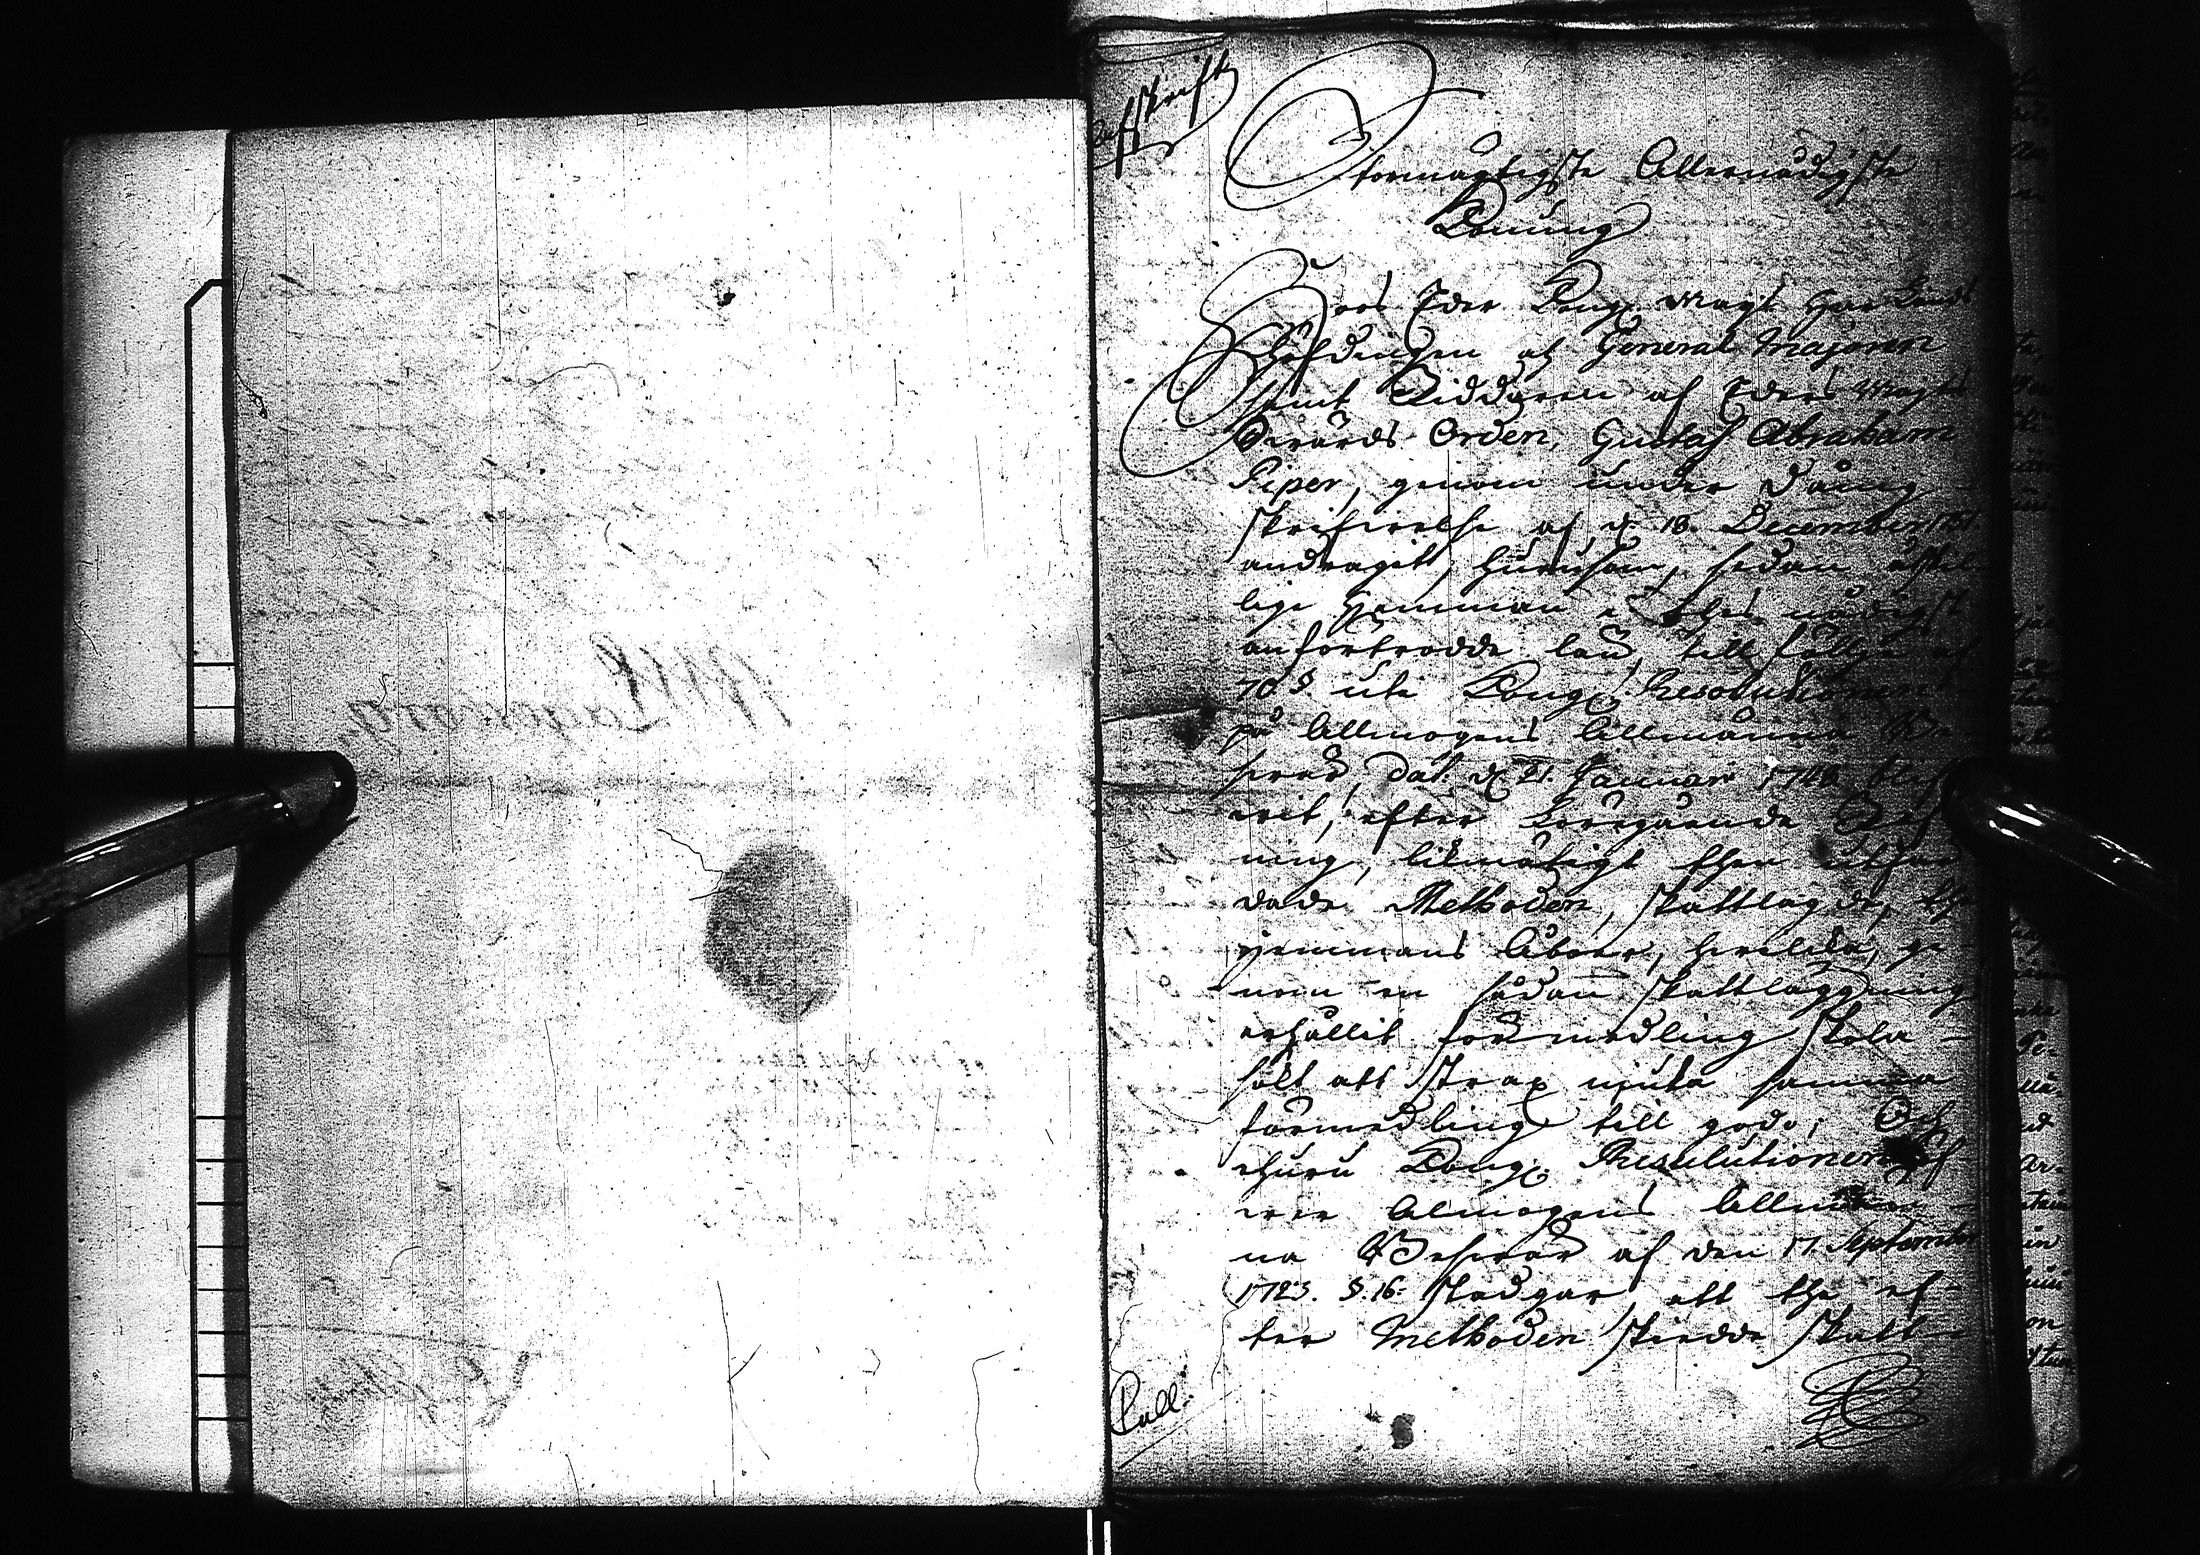 Afskrift
Stormägtigste Allernådigste
Konung
Hoos Eder Kongl. Maijt har Lands
höfdingen och General Majoren
samt Riddaren af Eders Maijts
Swärds Orden, Gustaf Abraham
Piper, genom under dånig
skrifwelse af d. 18. December
andragit, huruson, sedan åthskil-
lige hemman i thes nådigst
anförtrodde län, till följe af
70 § uti Kongl. Resolutionen
på Allmogens Allmänna Be-
swär, dat: d. 21. Januari 1748. blif
wit, efter föregående Ref-
ning, likmätigt then utfär
dade Methoden, skattlagde, the
hemmans Åboer, hwilka, ge
nom en sådan skattläggning
erhållit förmedling skola
fått att strax niuta samma
förmedling till godo; Och
ehuru Kongl. Resolutionen öf
wer Almogens Allmän-
na Beswär af den 17. Septembr
1723. §. 16. stadgar att the ef-
ter Methoden skedde skatt-
Coll: